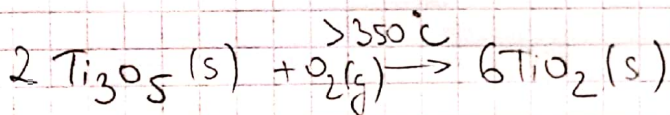 2 Ti₃O₅ (s) + O₂(g) →^{>350°C} 6TiO₂(s)